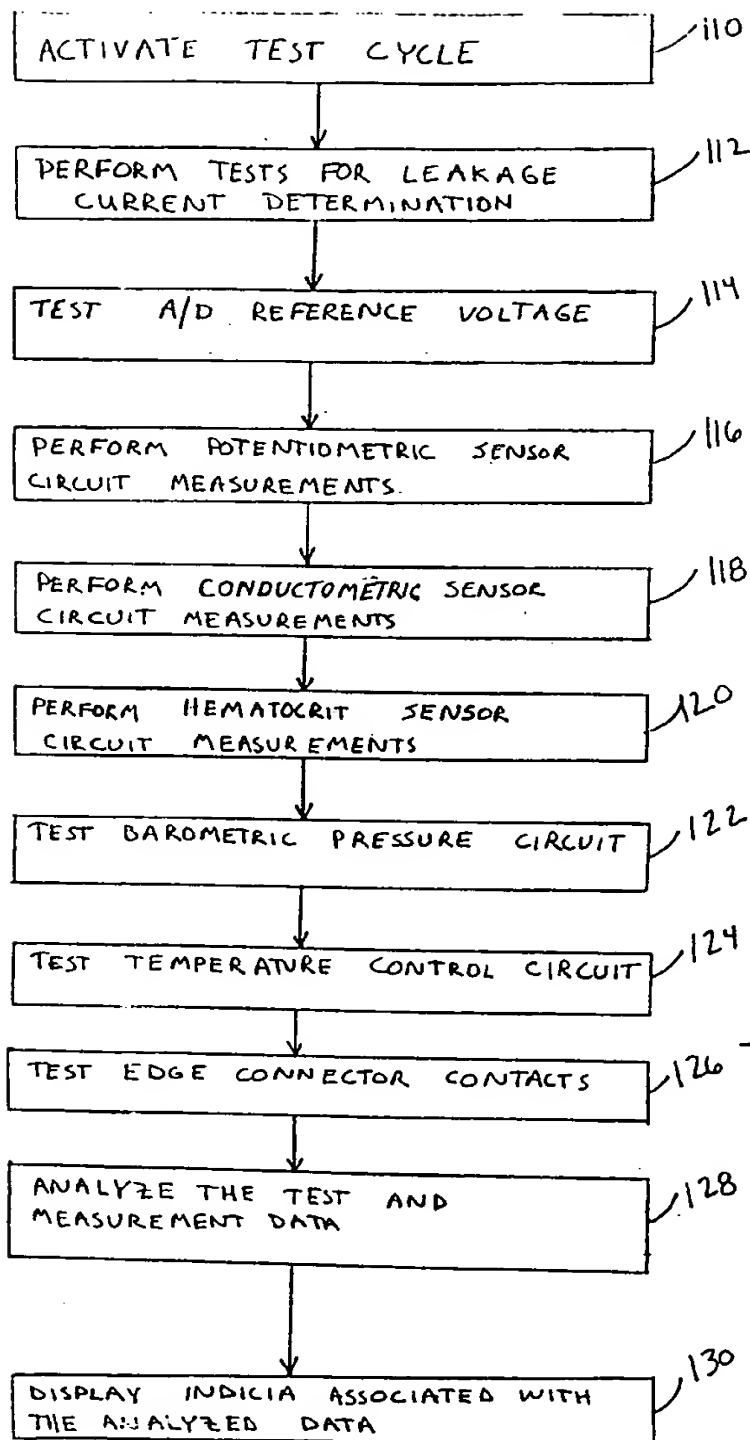 110
ACTIVATE TEST CYCLE
112
PERFORM TESTS FOR LEAKAGE
CURRENT DETERMINATION
114
TEST A/D REFERENCE VOLTAGE
116
PERFORM POTENTIOMETRIC SENSOR
CIRCUIT MEASUREMENTS.
118
PERFORM CONDUCTOMETRIC SENSOR
CIRCUIT MEASUREMENTS
120
PERFORM HEMATOCRIT SENSOR
CIRCUIT MEASUREMENTS
122
TEST BAROMETRIC PRESSURE CIRCUIT
124
TEST TEMPERATURE CONTROL CIRCUIT
126
TEST EDGE CONNECTOR CONTACTS
128
ANALYZE THE TEST AND
MEASUREMENT DATA
130
DISPLAY INDICIA ASSOCIATED WITH
THE ANALYZED DATA